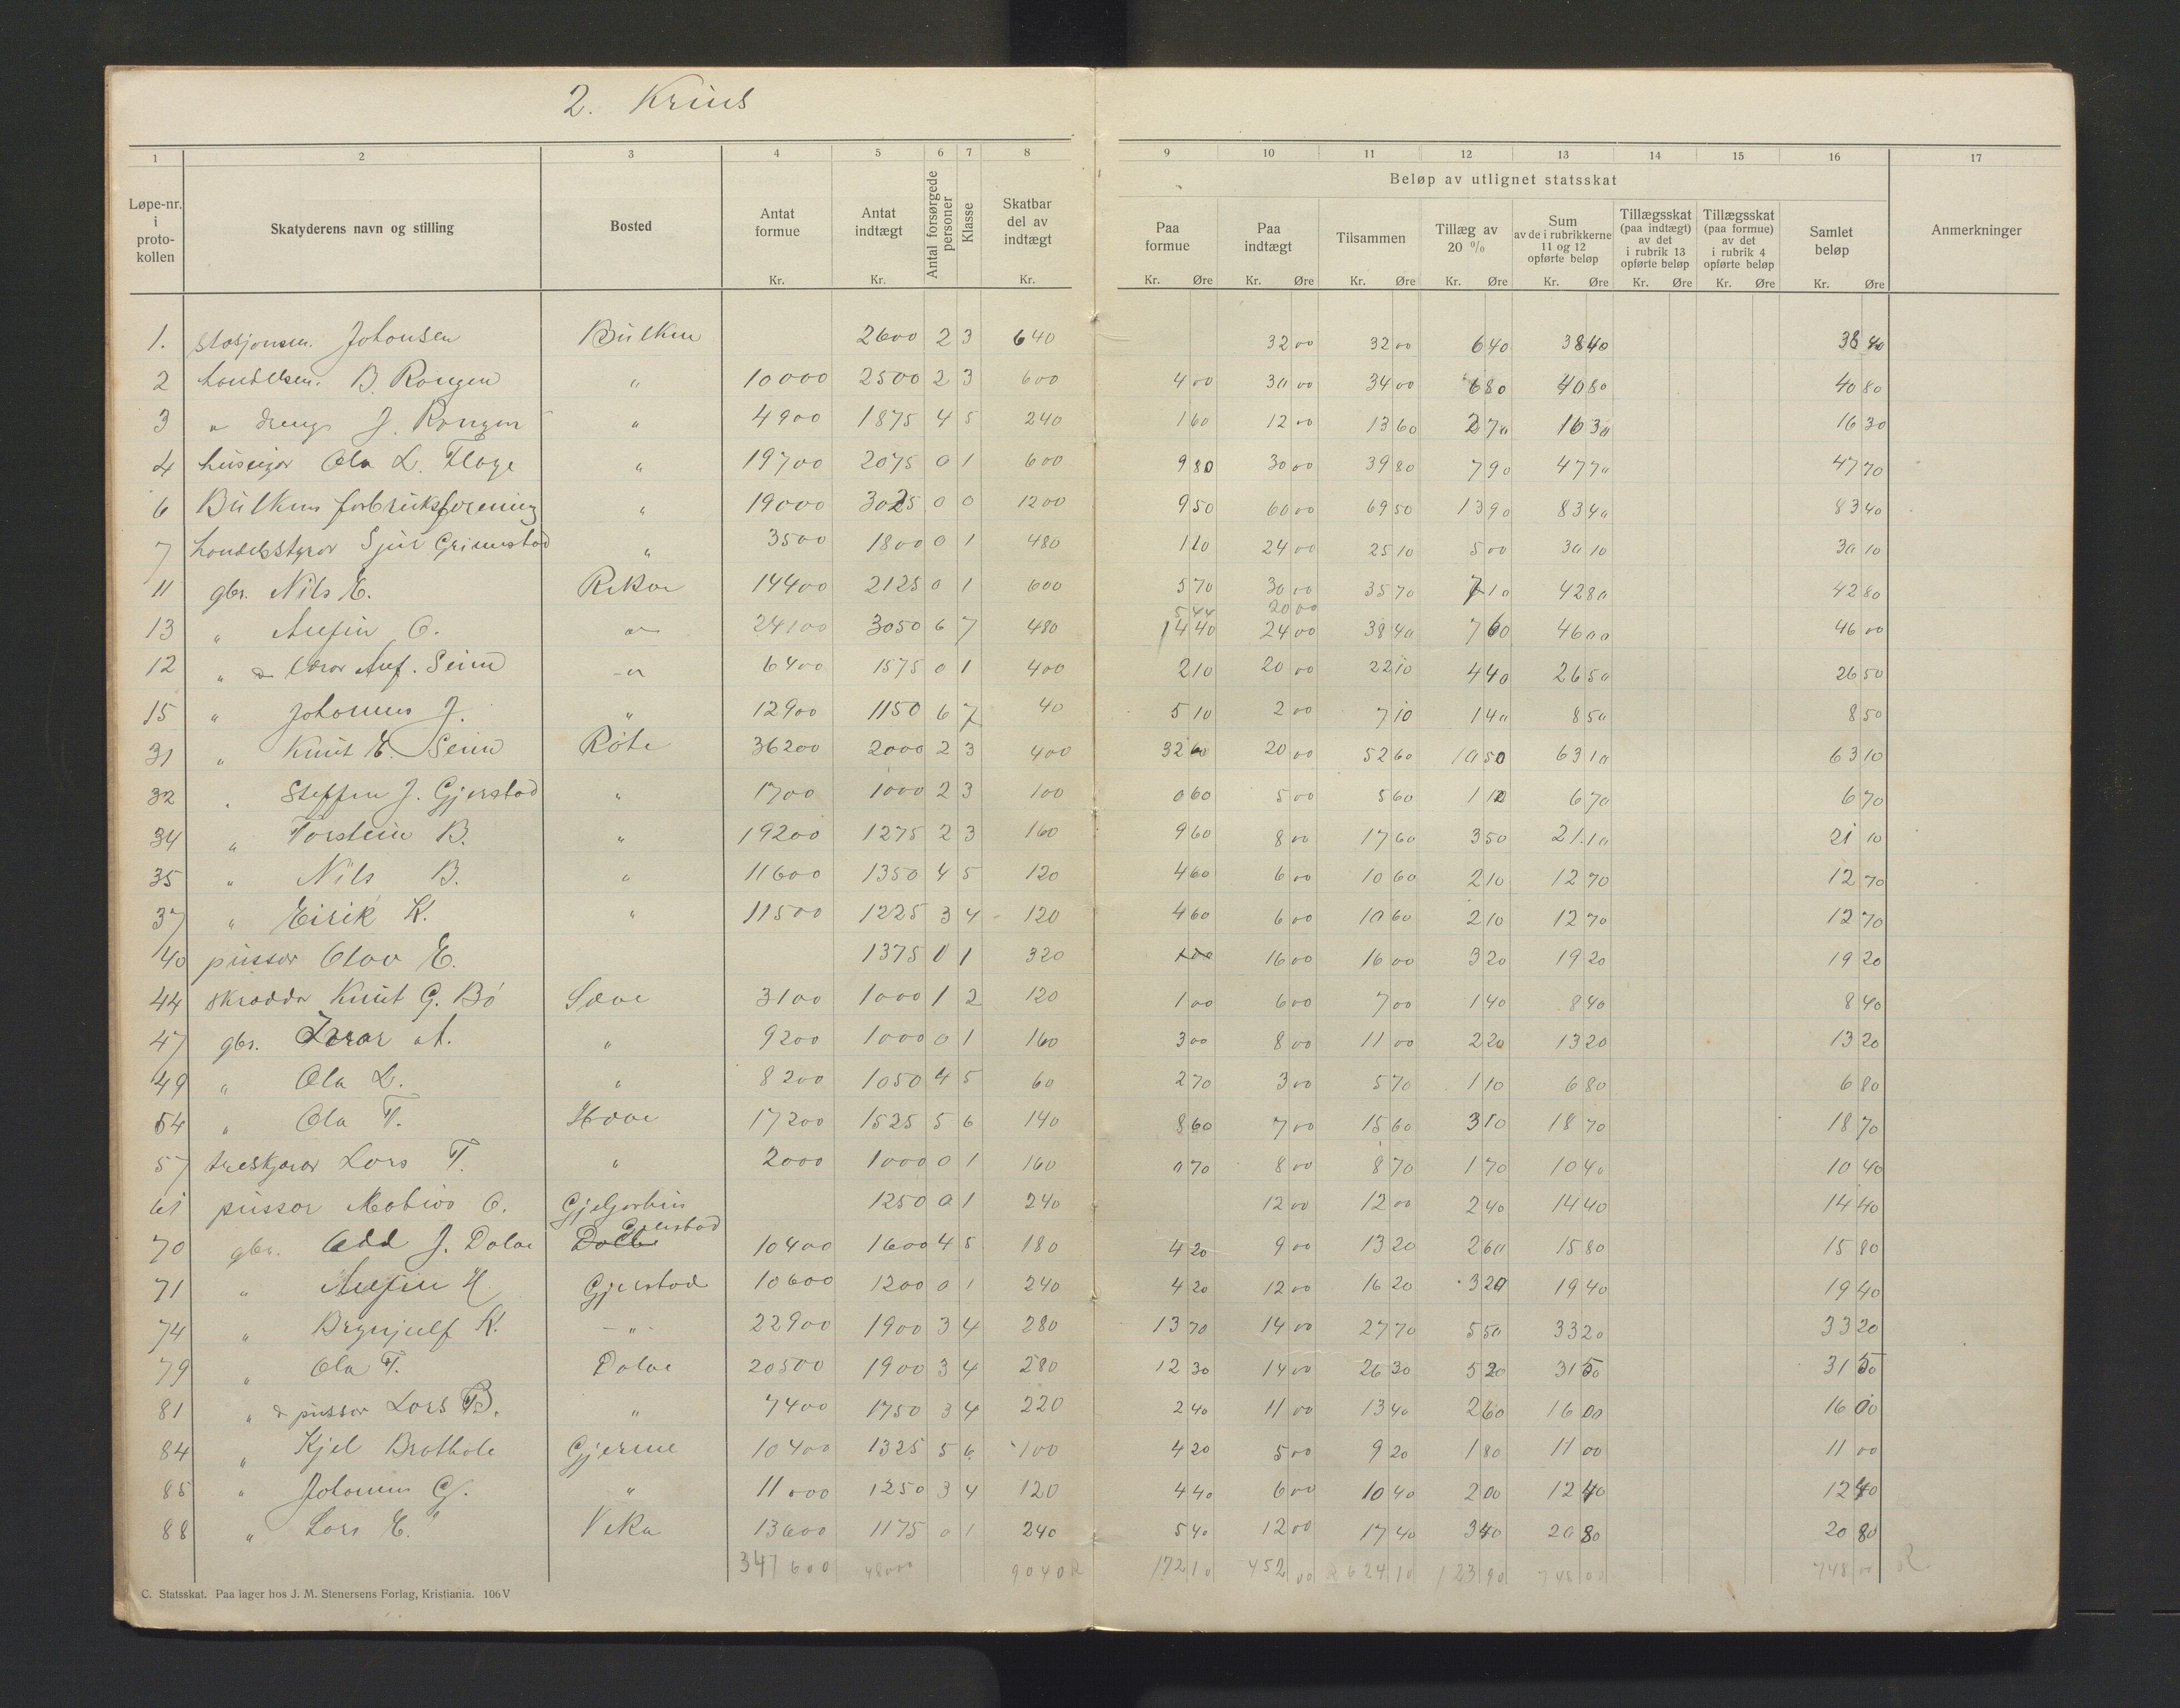 2. Krins
1 2 3 4 5 6 7 8 9 10 11 12 13 14 15 16 17
Løpe-nr. i proto-kollen
Skatyderens navn og stilling
Bosted
Antat formue Kr.
Antat indtægt Kr.
Antal forsørgede personer
Klasse
Skatbar del av indtægt Kr.
Beløp av utlignet statsskat
Paa formue Kr. Øre
Paa indtægt Kr. Øre
Tilsammen Kr. Øre
Tillæg av 20 % Kr. Øre
Sum av de i rubrikkerne 11 og 12 opførte beløp Kr. Øre
Tillægsskat (paa indtægt) av det i rubrik 13 opførte beløp Kr. Øre
Tillægsskat (paa formue) av det i rubrik 4 opførte beløp Kr. Øre
Samlet beløp Kr. Øre
Anmerkninger
1. stasjonsm. Johansen Bulken 2600 2 3 640 32 00 32 00 6 40 38 40 38 40
2 handelsm. B. Rongen " 10000 2500 2 3 600 4 00 30 00 34 00 6 80 40 80 40 80
3 " dreng J. Rongen " 4900 1875 4 5 240 1 60 12 00 13 60 2 70 16 30 16 30
4 huseigar Ola L. Fløge " 19700 2075 0 1 600 9 80 30 00 39 80 7 90 47 70 47 70
6 Bulkens forbruksforening " 19000 3025 0 0 1200 9 50 60 00 69 50 13 90 83 40 83 40
7 handelsstyrar Sjur Grimestad " 3500 1800 0 1 480 1 10 24 00 25 10 5 00 30 10 30 10
11 gbr. Nils E. Rekve 14400 2125 0 1 600 5 70 30 00 35 70 7 10 42 80 42 80
5 44 20 00
13 " Anfin O. " 24100 3050 6 7 480 14 40 24 00 38 40 7 60 46 00 46 00
12 " & lærar Anf. Seim " 6400 1575 0 1 400 2 10 20 00 22 10 4 40 26 50 26 50
15 " Johannes J. " 12900 1150 6 7 40 5 10 2 00 7 10 1 40 8 50 8 50
31 " Knut E. Seim Røte 36200 2000 2 3 400 32 60 20 00 52 60 10 50 63 10 63 10
32 " Steffen J. Gjerstad " 1700 1000 2 3 100 0 60 5 00 5 60 1 10 6 70 6 70
34 " Torstein B. " 19200 1275 2 3 160 9 60 8 00 17 60 3 50 21 10 21 10
35 " Nils B. " 11600 1350 4 5 120 4 60 6 00 10 60 2 10 12 70 12 70
37 " Eirik K. " 11500 1225 3 4 120 4 60 6 00 10 60 2 10 12 70 12 70
40 pussar Olav E. 1375 0 1 320 1 00 16 00 16 00 3 20 19 20 19 20
44 skræddar Knut G. Bø Sæve 3100 1000 1 2 120 1 00 6 00 7 00 1 40 8 40 8 40
47 gbr. Ivar A. " 9200 1000 0 1 160 3 00 8 00 11 00 2 20 13 20 13 20
49 " Ola L. " 8200 1050 4 5 60 2 70 3 00 5 70 1 10 6 80 6 80
54 " Ola T. Hæve 17200 1525 5 6 140 8 60 7 00 15 60 3 10 18 70 18 70
57 treskjærar Lars T. " 2000 1000 0 1 160 0 70 8 00 8 70 1 70 10 40 10 40
61 pussar Mathias O. 1250 0 1 240 12 00 12 00 2 40 14 40 14 40
70 gbr. Odd J. Dolve Dolve Gjerstad 10400 1600 4 5 180 4 20 9 00 13 20 2 60 15 80 15 80
71 " Anfin H. Gjerstad 10600 1200 0 1 240 4 20 12 00 16 20 3 20 19 40 19 40
74 " Brynjulf K. " 22900 1900 3 4 280 13 70 14 00 27 70 5 50 33 20 33 20
79 " Ola T. Dolve 20500 1900 3 4 280 12 30 14 00 26 30 5 20 31 50 31 50
81 " & pussar Lars B. " 7400 1750 3 4 220 2 40 11 00 13 40 2 60 16 00 16 00
84 " Kjel Brathole Gjerme 10400 1325 5 6 100 4 20 5 00 9 20 1 80 11 00 11 00
85 " Johannes G. " 11000 1250 3 4 120 4 40 6 00 10 40 2 00 12 40 12 40
88 " Lars E. Veka 13600 1175 0 1 240 5 40 12 00 17 40 3 40 20 80 20 80
347600 48000 9040 172 10 452 00 624 10 123 90 748 00 748 00
C. Statsskat. Paa lager hos J. M. Stenersens Forlag, Kristiania. 106 V